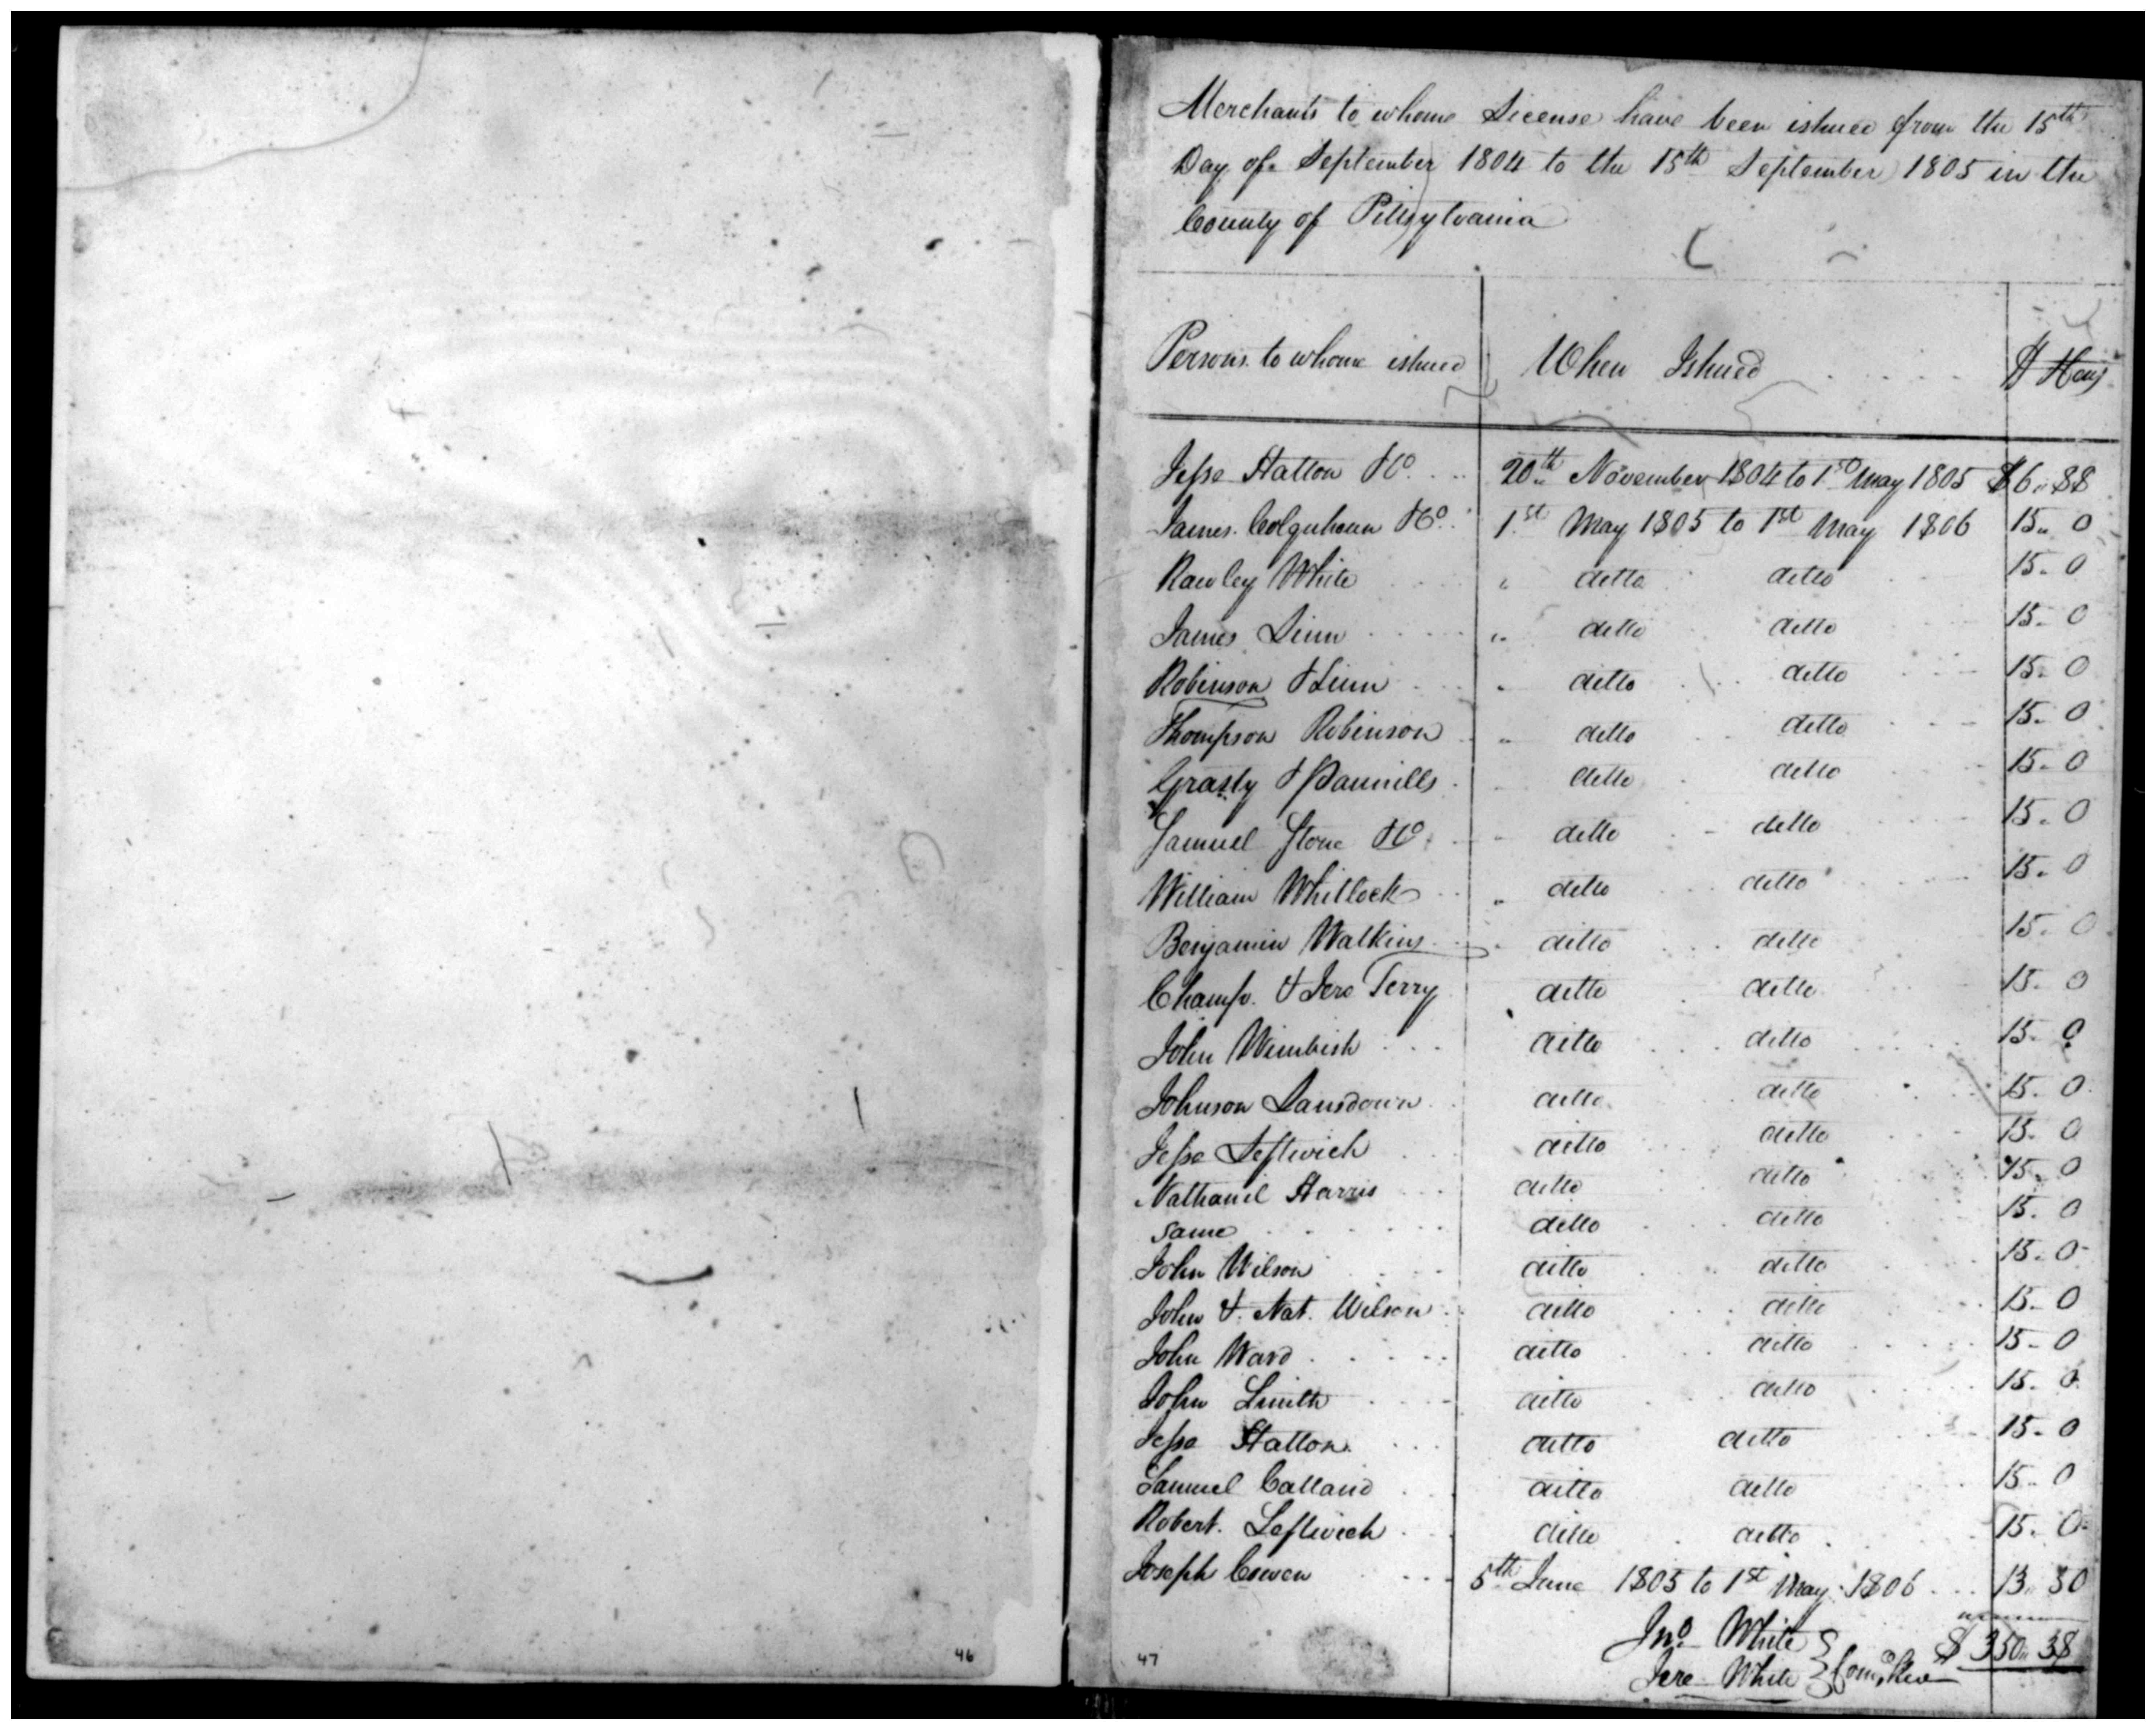 Merchants to whome License have been issued from the 15th
Day of September 1804 to the 15th September 1805 in the
County of Pittsylvania
Persons to whome issued When Issued $
Jesse Hatton & Co. 20th November 1804 to 1st May 1805 $6.. 88
James Colquhoun & Co. 1st May 1805 to 1st May 1806 15.. 0
Rawley White " ditto ditto 15. 0
James Linn " ditto ditto 15. 0
Robinson & Linn " ditto ditto 15. 0
Thompson Robinson " ditto ditto 15. 0
Grasty & Pannills ditto ditto 15. 0
Samuel Stone & Co. " ditto ditto 15. 0
William Whitlock " ditto ditto 15. 0
Benjamin Watkins ditto ditto 15. 0
Champ. & Jere Terry ditto ditto 15. 0
John Wimbish ditto ditto 15. 0
Johnson Lansdown ditto ditto 15. 0
Jesse Leftwich ditto ditto 15. 0
Nathaniel Harris ditto ditto 15. 0
Same ditto ditto 15. 0
John Wilson ditto ditto 15. 0
John & Nat. Wilson ditto ditto 15. 0
John Ward ditto ditto 15. 0
John Smith ditto ditto 15. 0
Jesse Hatton ditto ditto 15. 0
Samuel Calland ditto ditto 15. 0
Robert Leftwich ditto ditto 15. 0
Joseph Cowen 5th June 1805 to 1st May 1806 13.. 50
Jno. White
Jere White Comrs. Rev $350.. 38
46
47